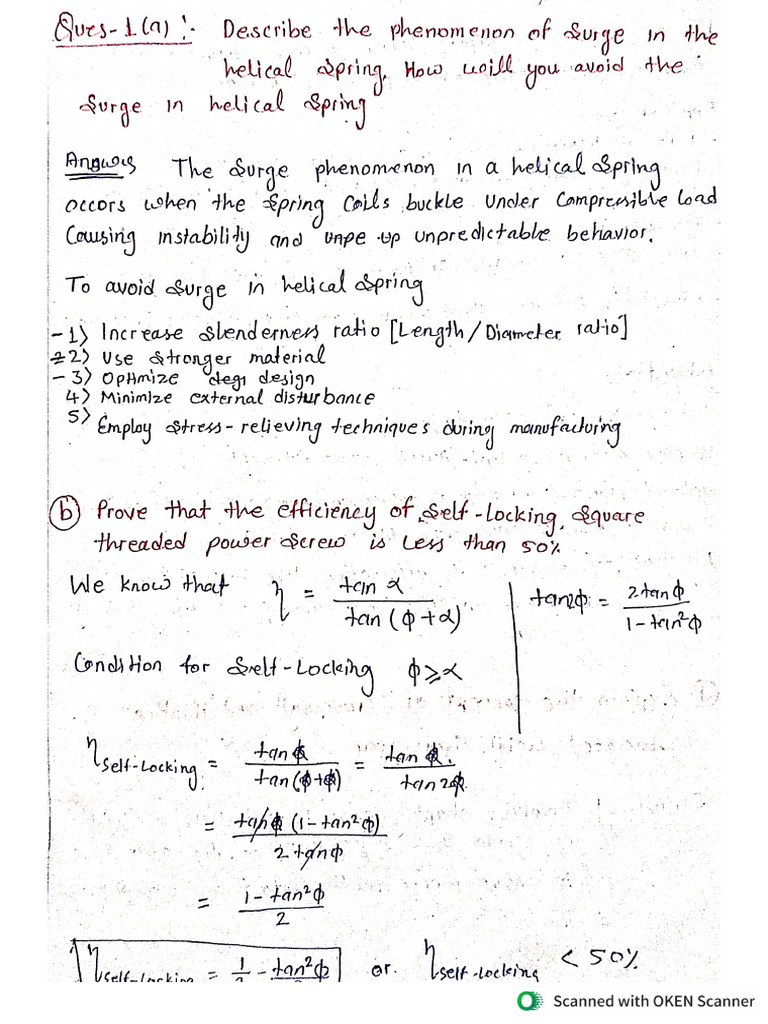 Ques-1(a) :- Describe the phenomenon of Surge in the
helical Spring. How will you avoid the
Surge in helical Spring
The Surge phenomenon in a helical Spring
occors when the Spring Coils buckle under Compressible Load
Causing instability and up unpredictable behavior.
To avoid Surge in helical Spring
- 1) Increase Slenderness ratio [Length/Diameter ratio]
2) Use Stronger material
- 3) Optimize design
4) Minimize external disturbance
5) Employ Stress-relieving techniques during manufacturing
(b) Prove that the efficiency of Self-locking, Square
threaded power Screw is Less than 50%
We know that η = tan α / tan (ϕ+α) | tan2ϕ = 2tanϕ / 1-tan²ϕ
Condition for Self-Locking ϕ ≥ α
η Self-Locking = tan ϕ / tan (ϕ+ϕ) = tan ϕ / tan 2ϕ
= tan ϕ (1-tan²ϕ) / 2 tanϕ
= 1-tan²ϕ / 2
η Self-Locking = 1/2 - tan²ϕ or. η Self-Locking < 50%
Scanned with OKEN Scanner